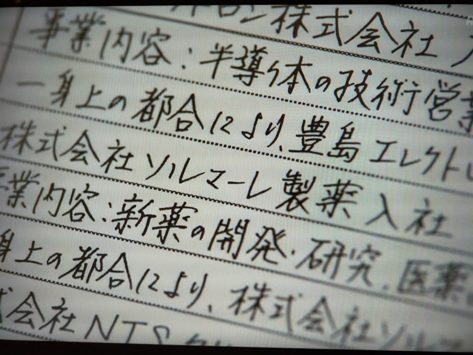 トロン株式会社 入
事業内容:半導体の技術営業
一身上の都合により、豊島エレクトロ
株式会社ソルマーレ製薬 入社
業内容:新薬の開発・研究、医薬
身上の都合により、株式会社ソルマ
式会社NTS